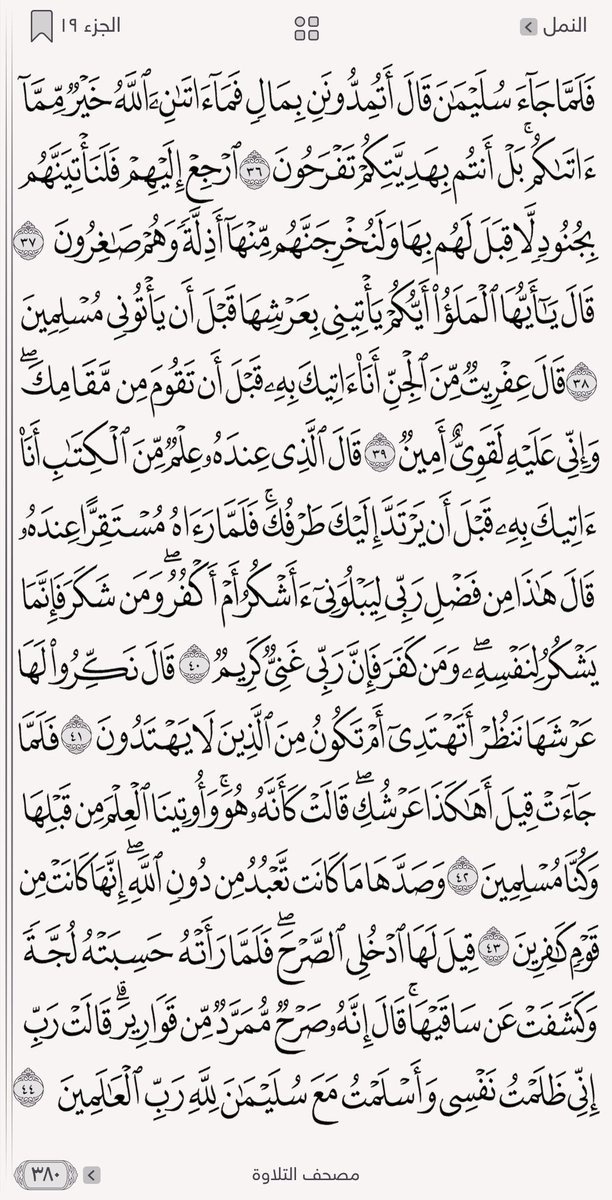 النمل
الجزء ١٩
فَلَمَّا جَآءَ سُلَيْمَٰنَ قَالَ أَتُمِدُّونَنِ بِمَالٍ فَمَآ ءَاتَىٰنِۦَ ٱللَّهُ خَيْرٌ مِّمَّآ
ءَاتَىٰكُمۚ بَلْ أَنتُم بِهَدِيَّتِكُمْ تَفْرَحُونَ ٣٦ ٱرْجِعْ إِلَيْهِمْ فَلَنَأْتِيَنَّهُم
بِجُنُودٍ لَّا قِبَلَ لَهُم بِهَا وَلَنُخْرِجَنَّهُم مِّنْهَآ أَذِلَّةً وَهُمْ صَٰغِرُونَ ٣٧
قَالَ يَٰٓأَيُّهَا ٱلْمَلَؤُا۟ أَيُّكُمْ يَأْتِينِى بِعَرْشِهَا قَبْلَ أَن يَأْتُونِى مُسْلِمِينَ
٣٨ قَالَ عِفْرِيتٌ مِّنَ ٱلْجِنِّ أَنَا۠ ءَاتِيكَ بِهِۦ قَبْلَ أَن تَقُومَ مِن مَّقَامِكَۖ
وَإِنِّى عَلَيْهِ لَقَوِىٌّ أَمِينٌ ٣٩ قَالَ ٱلَّذِى عِندَهُۥ عِلْمٌ مِّنَ ٱلْكِتَٰبِ أَنَا۠
ءَاتِيكَ بِهِۦ قَبْلَ أَن يَرْتَدَّ إِلَيْكَ طَرْفُكَۚ فَلَمَّا رَءَاهُ مُسْتَقِرًّا عِندَهُۥ
قَالَ هَٰذَا مِن فَضْلِ رَبِّى لِيَبْلُوَنِىٓ ءَأَشْكُرُ أَمْ أَكْفُرُۖ وَمَن شَكَرَ فَإِنَّمَا
يَشْكُرُ لِنَفْسِهِۦۖ وَمَن كَفَرَ فَإِنَّ رَبِّى غَنِىٌّ كَرِيمٌ ٤٠ قَالَ نَكِّرُوا۟ لَهَا
عَرْشَهَا نَنظُرْ أَتَهْتَدِىٓ أَمْ تَكُونُ مِنَ ٱلَّذِينَ لَا يَهْتَدُونَ ٤١ فَلَمَّا
جَآءَتْ قِيلَ أَهَٰكَذَا عَرْشُكِۖ قَالَتْ كَأَنَّهُۥ هُوَۚ وَأُوتِينَا ٱلْعِلْمَ مِن قَبْلِهَا
وَكُنَّا مُسْلِمِينَ ٤٢ وَصَدَّهَا مَا كَانَت تَّعْبُدُ مِن دُونِ ٱللَّهِۖ إِنَّهَا كَانَتْ مِن
قَوْمٍ كَٰفِرِينَ ٤٣ قِيلَ لَهَا ٱدْخُلِى ٱلصَّرْحَۖ فَلَمَّا رَأَتْهُ حَسِبَتْهُ لُجَّةً
وَكَشَفَتْ عَن سَاقَيْهَاۚ قَالَ إِنَّهُۥ صَرْحٌ مُّمَرَّدٌ مِّن قَوَارِيرَۗ قَالَتْ رَبِّ
إِنِّى ظَلَمْتُ نَفْسِى وَأَسْلَمْتُ مَعَ سُلَيْمَٰنَ لِلَّهِ رَبِّ ٱلْعَٰلَمِينَ ٤٤
مصحف التلاوة
٣٨٠